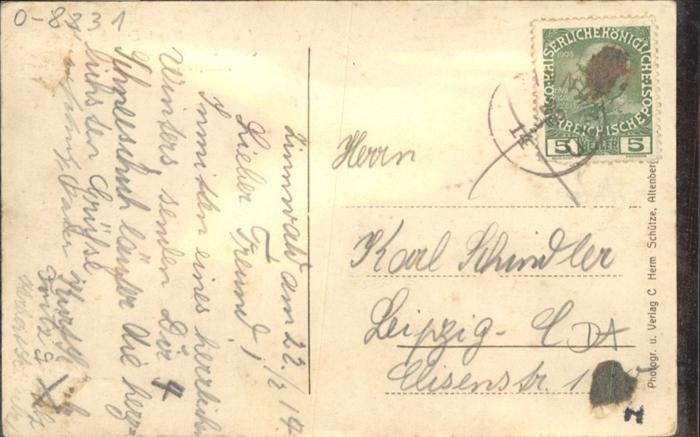 0-8831
Zinnwald am 22./2 14.
Lieber Freund!
Inmitten eines herrlichen
Winters senden Dir 4
Schneeschuhläufer die herz-
lichsten Grüße
Herrn
Karl Schindler
Leipzig-
Elisenstr. 1
KAISERLICHEKÖNIGLICHE
ÖSTERREICHISCHEPOST
1908
5 HELLER 5
14
Photogr. u. Verlag C Herm Schütze, Altenberg
N